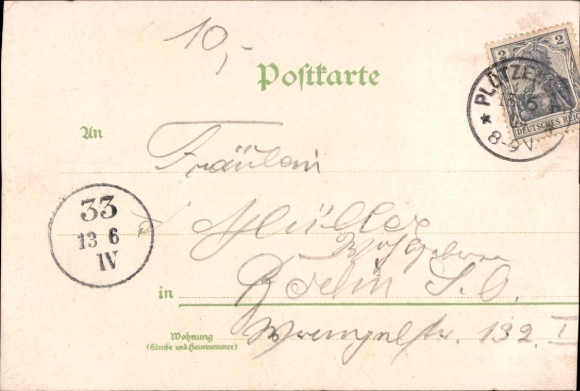 10,-
Postkarte
2 2
PLÖTZE
DEUTSCHES REICH
* 8-9 V.
An
Fräulein
Müller
Wohlgeboren
33
13 6
IV
in Berlin S.O.
Wohnung
(Straße und Hausnummer)
Wrangelstr. 132. I